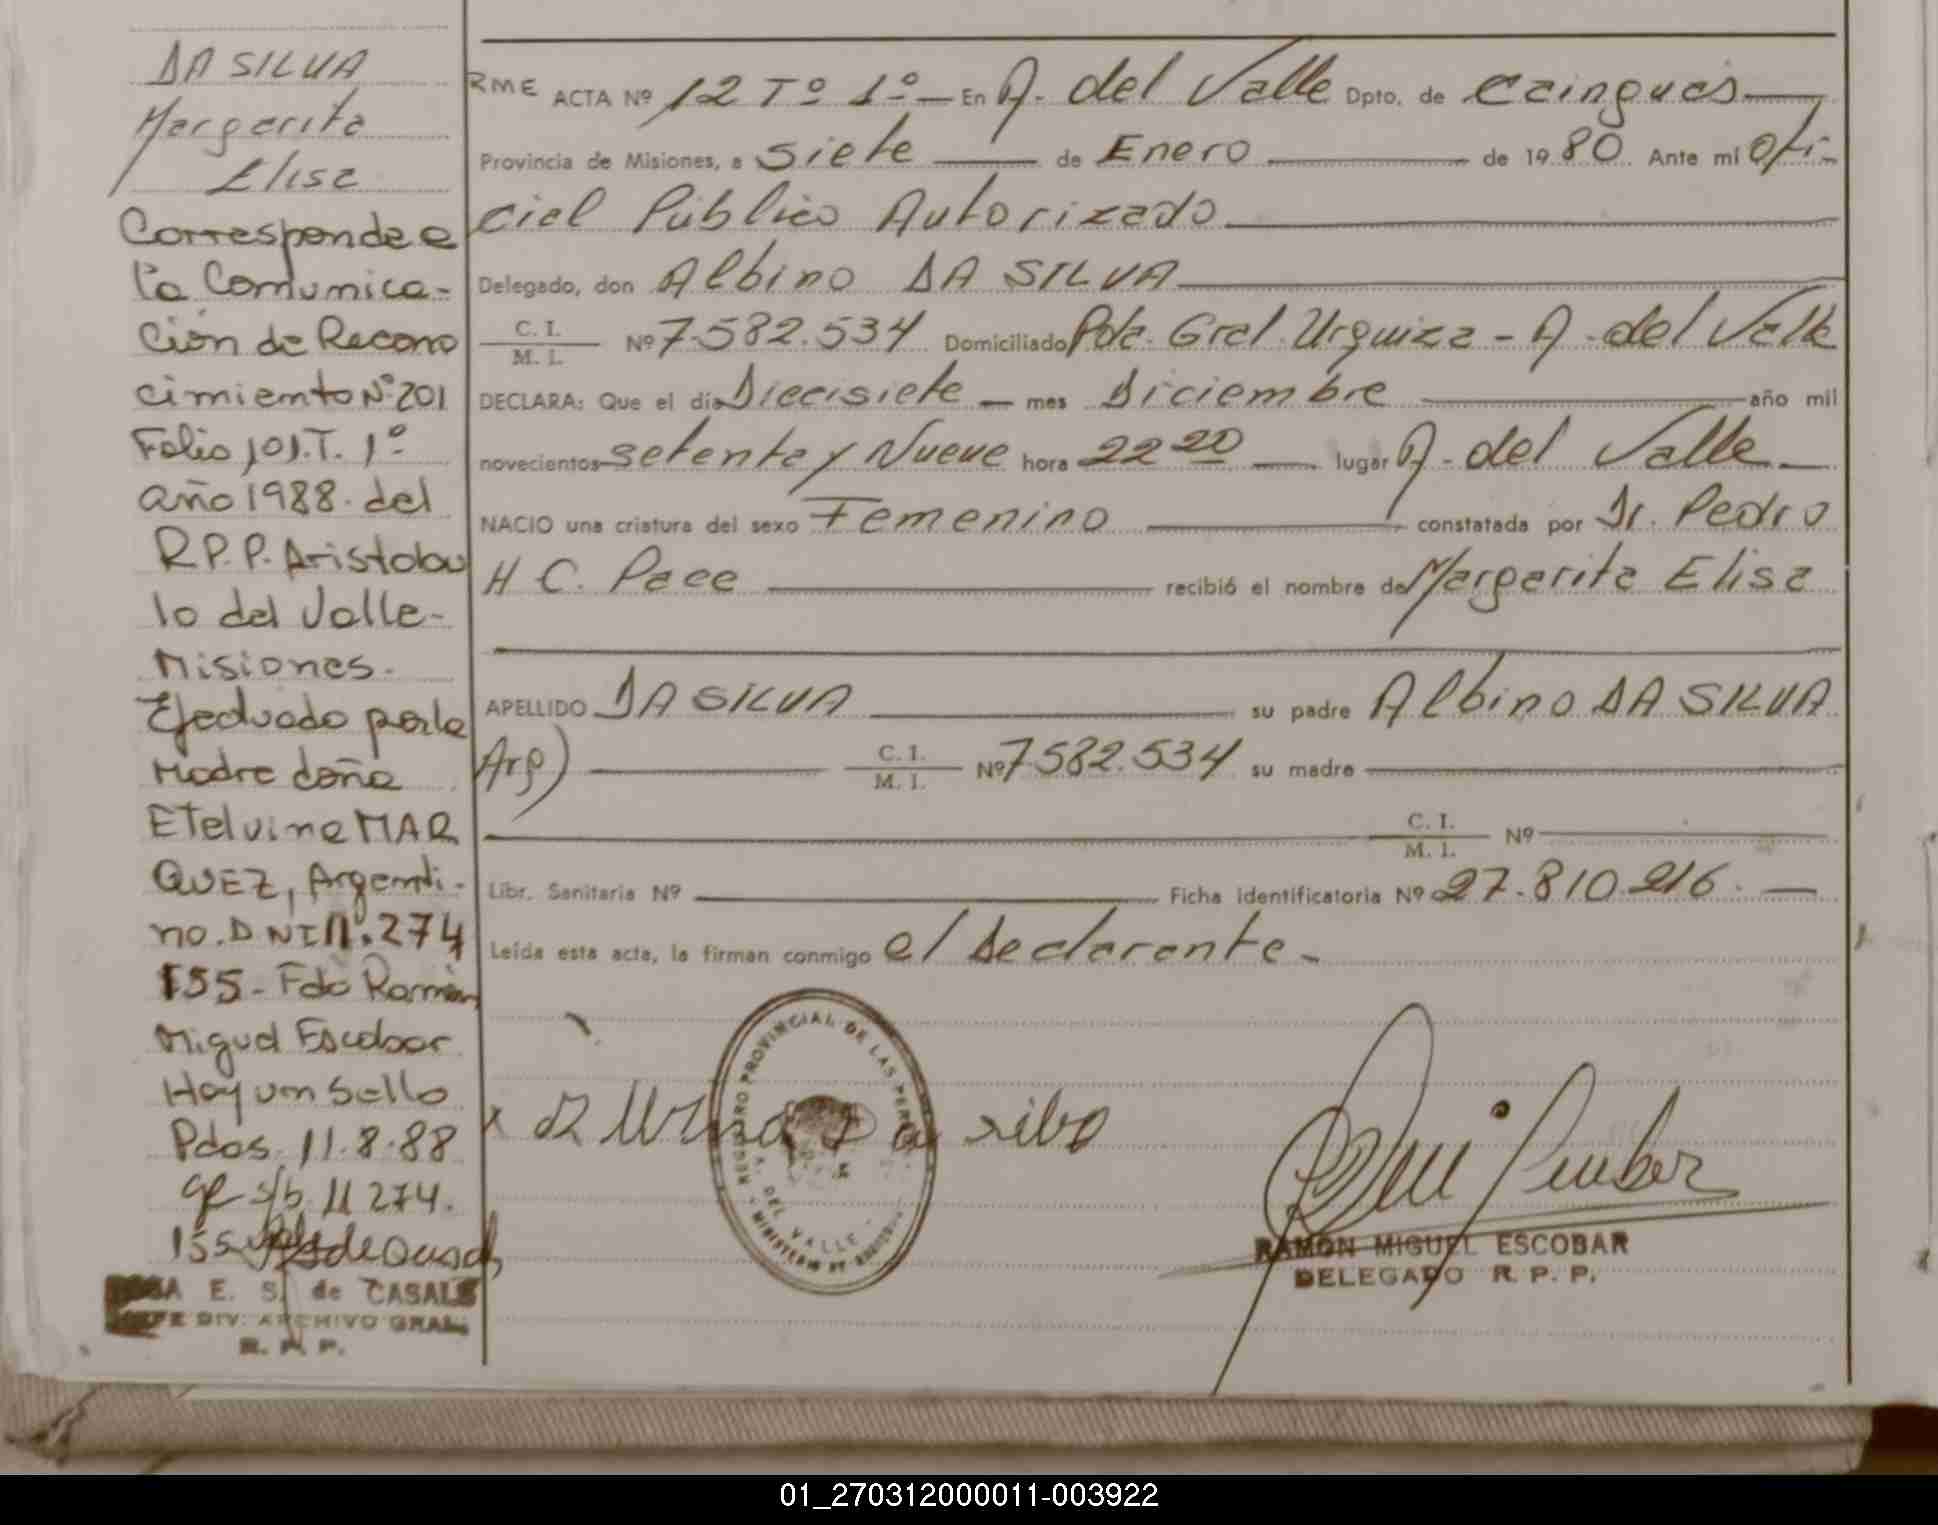 DA SILVA
Margarita
Elisa
Corresponde a
la Comunica-
ción de Recono
cimiento Nº 201
Folio 101. T. 1º
año 1988. del
R.P.P. Aristobu
lo del Valle-
Misiones.
Efectuado por la
Madre doña
Etelvina MAR
QUEZ, Argenti-
no. DNI nº. 274
155 - Fdo Ramón
Miguel Escobar
Hay un Sello
Pdas. 11.8.88
s/b. 11 274.
155
E. S. de CASALS
DIV. ARCHIVO GRAL.
R. P. P.
RME ACTA Nº 12 Tº 1º — En A. del Valle Dpto. de Cainguas
Provincia de Misiones, a siete de Enero de 1980. Ante mi ofi-
cial Público Autorizado
Delegado, don Albino DA SILVA
C. I. / M. I. Nº 7.582.534 Domiciliado Pda. Gral. Urquiza - A. del Valle
DECLARA: Que el día Diecisiete — mes Diciembre año mil
novecientos setenta y Nueve hora 22 20 — lugar A. del Valle
NACIO una criatura del sexo Femenino constatada por Dr. Pedro
H C. Pace recibió el nombre de Margarita Elisa
APELLIDO DA SILVA su padre Albino DA SILVA
Arg) C. I. / M. I. Nº 7582.534 su madre
C. I. / M. I. Nº
Libr. Sanitaria Nº Ficha identificatoria Nº 27.810.216. —
Leída esta acta, la firman conmigo el Declarante.-
REGISTRO PROVINCIAL DE LAS PERS
A. DEL VALLE
RAMON MIGUEL ESCOBAR
DELEGADO R. P. P.
01_270312000011-003922